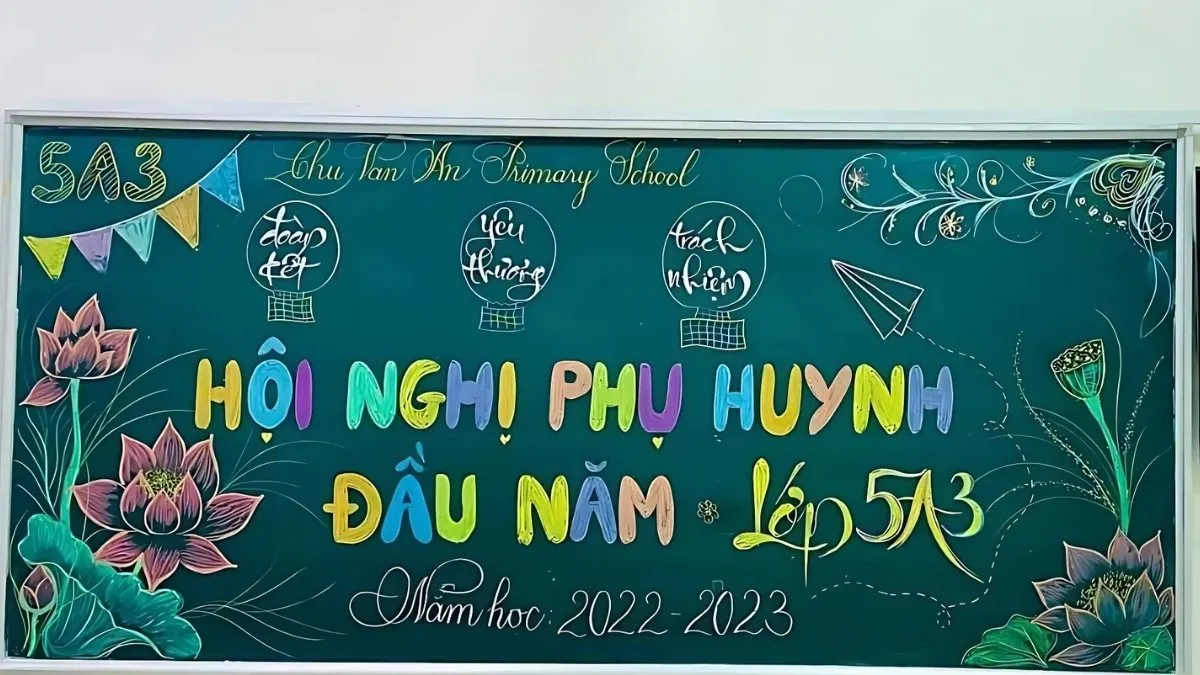 5A3
Chu Van An Primary School
đoàn
kết
yêu
thương
trách
nhiệm
HỘI NGHỊ PHỤ HUYNH
ĐẦU NĂM
Lớp 5A3
Năm học: 2022-2023